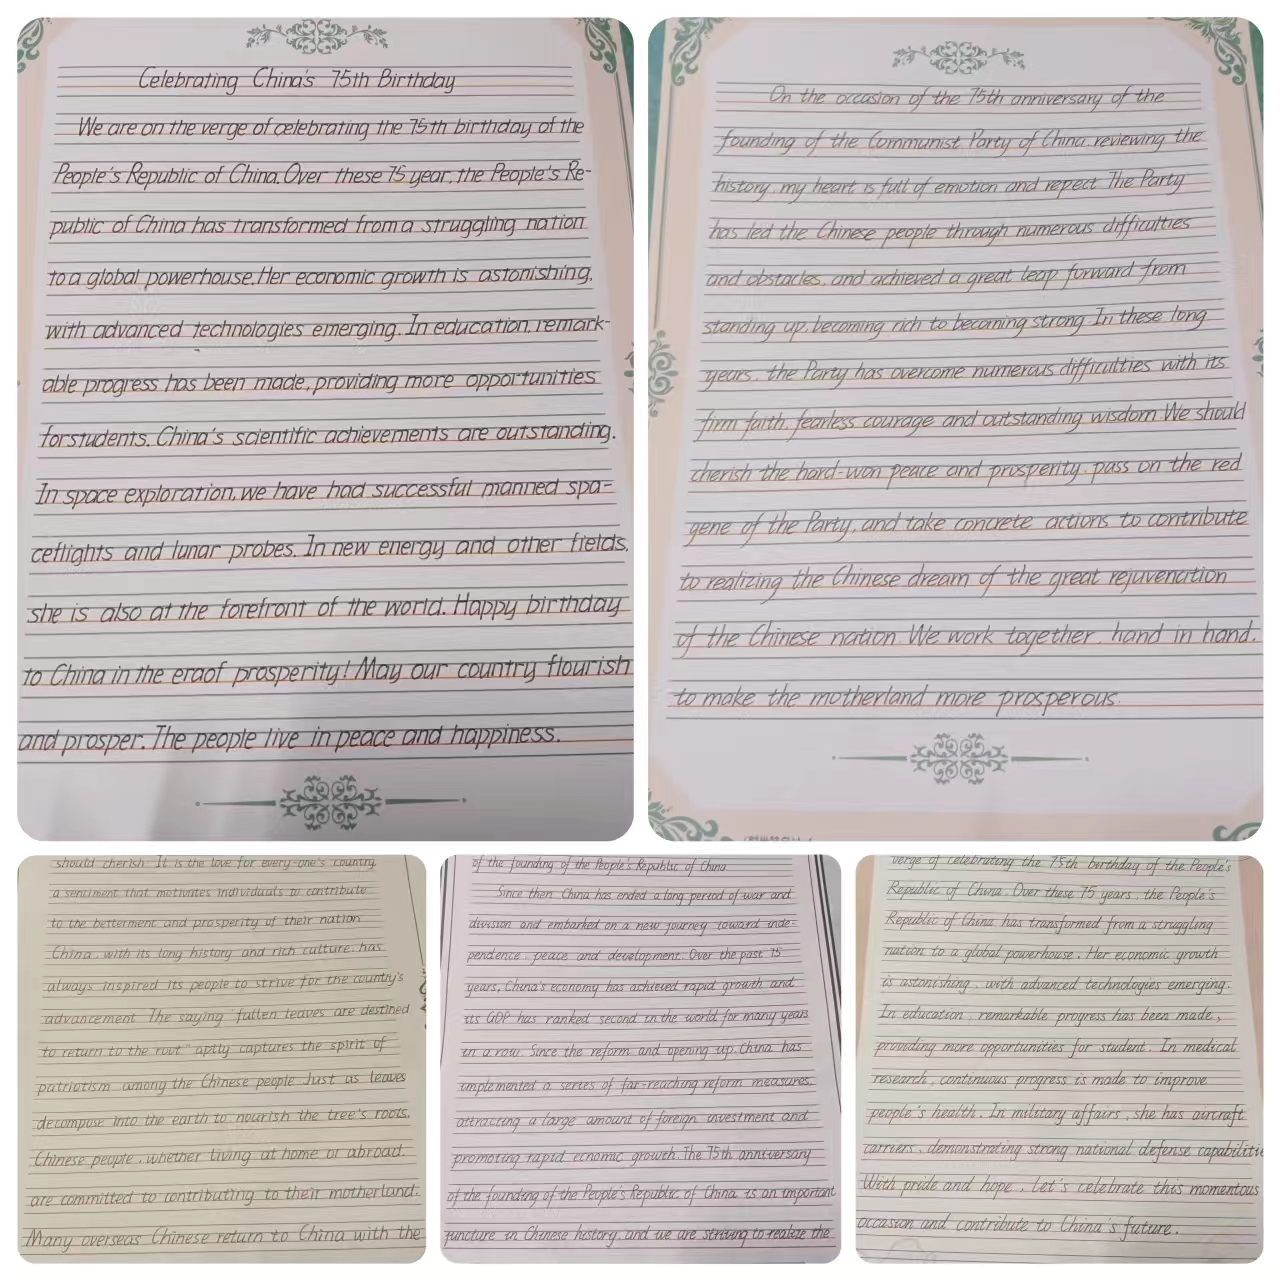 Celebrating China's 75th Birthday
We are on the verge of celebrating the 75th birthday of the
People's Republic of China. Over these 75 year, the People's Re-
public of China has transformed from a struggling nation
to a global powerhouse. Her economic growth is astonishing,
with advanced technologies emerging. In education, remark-
able progress has been made, providing more opportunities
forstudents. China's scientific achievements are outstanding.
In space exploration, we have had successful manned spa-
ceflights and lunar probes. In new energy and other fields,
she is also at the forefront of the world. Happy birthday
to China in the eraof prosperity! May our country flourish
and prosper. The people live in peace and happiness.
On the occasion of the 75th anniversary of the
founding of the Communist Party of China, reviewing the
history, my heart is full of emotion and repect. The Party
has led the Chinese people through numerous difficulties
and obstacles, and achieved a great leap forward from
standing up, becoming rich to becoming strong. In these long
years, the Party has overcome numerous difficulties with its
firm faith, fearless courage and outstanding wisdom. We should
cherish the hard-won peace and prosperity, pass on the red
gene of the Party, and take concrete actions to contribute
to realizing the Chinese dream of the great rejuvencition
of the Chinese nation. We work together, hand in hand,
to make the motherland more prosperous.
should cherish. It is the love for every-one's country,
a sentiment that motivates individuals to contribute
to the betterment and prosperity of their nation
China, with its long history and rich culture, has
always inspired its people to strive for the country's
advancement. The saying "fallen leaves are destined
to return to the root" aptly captures the spirit of
patriotism among the Chinese people. Just as leaves
decompose into the earth to nourish the tree's roots,
Chinese people, whether living at home or abroad,
are committed to contributing to their motherland.
Many overseas Chinese return to China with the
of the founding of the People's Republic of China
Since then, China has ended a long period of war and
division and embarked on a new journey toward inde-
pendence, peace and development. Over the past 75
years, China's economy has achieved rapid growth and
its GDP has ranked second in the world for many years
in a row. Since the reform and opening up, China has
implemented a series of far-reaching reform measures,
attracting a large amount of foreign investment and
promoting rapid ecnomic growth. The 75th anniversary
of the founding of the People's Republic of China is an important
juncture in Chinese history, and we are striving to realize the
verge of celebrating the 75th birthday of the People's
Republic of China. Over these 75 years, the People's
Republic of China has transformed from a struggling
nation to a global powerhouse. Her economic growth
is astonishing, with advanced technologies emerging.
In education, remarkable progress has been made,
providing more opportunities for student. In medical
research, continuous progress is made to improve
people's health. In military affairs, she has aircraft
carriers, demonstrating strong national defense capabilitie
With pride and hope, let's celebrate this momentous
occasion and contribute to China's future.